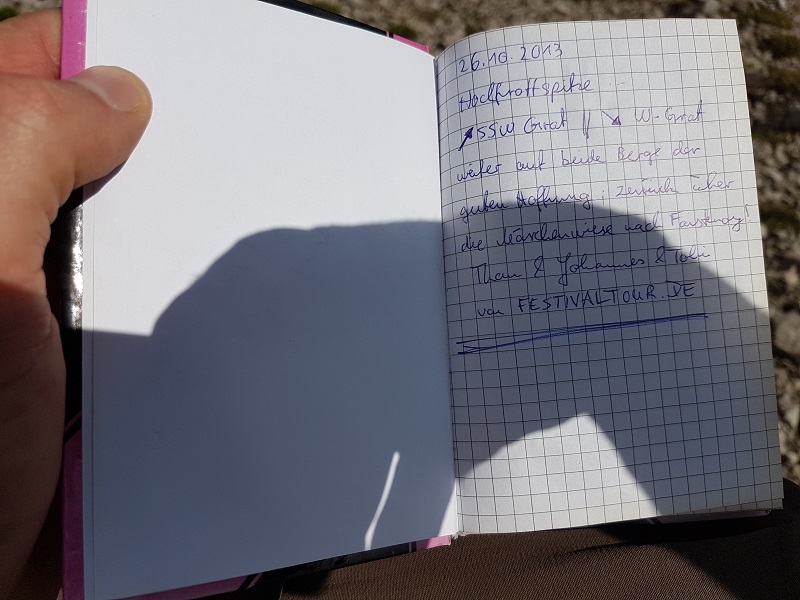 26.10.2013
Hochfrottspitze
↗ SSW Grat || ↘ W-Grat
weiter auf beide Berge der
guten Hoffnung; zurück über
die Märchenwiese nach
& Johannes & Tobi
von FESTIVALTOUR.DE